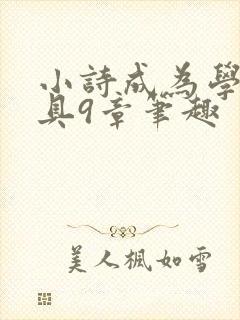 小詩成為學
具9章筆趣
美人楓如雪